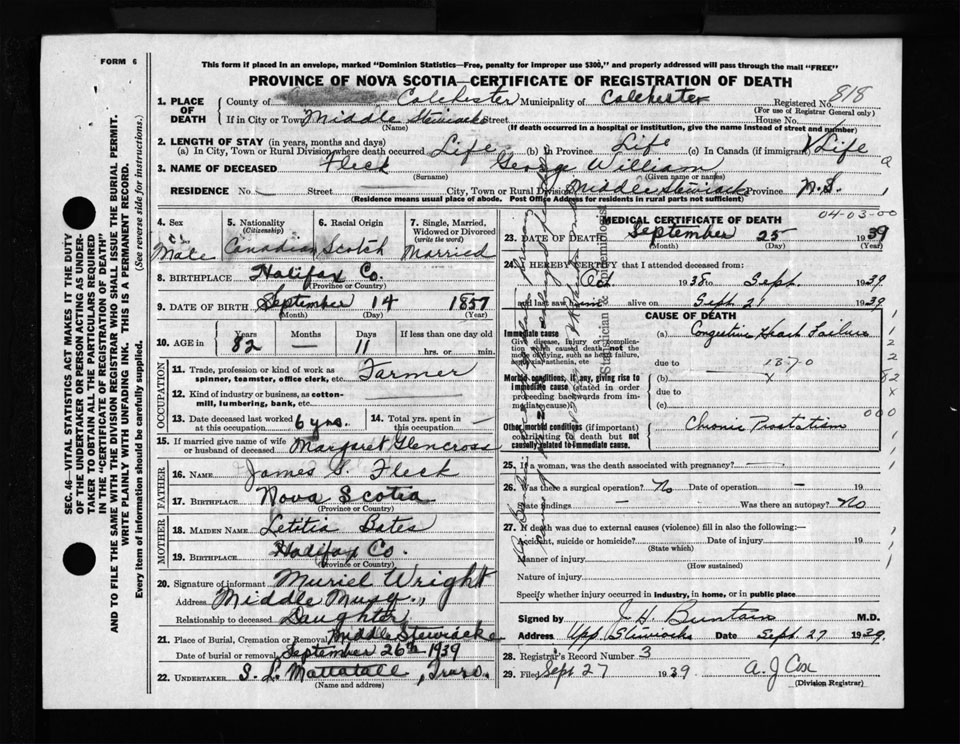 FORM 6
This form if placed in an envelope, marked "Dominion Statistics—Free, penalty for improper use $300," and properly addressed will pass through the mail "FREE"
PROVINCE OF NOVA SCOTIA—CERTIFICATE OF REGISTRATION OF DEATH
1. PLACE OF DEATH County of Colchester Municipality of Colchester Registered No. 818
(For use of Registrar General only)
If in City or Town Middle Stewiacke Street House No.
(Name) (If death occurred in a hospital or institution, give the name instead of street and number)
2. LENGTH OF STAY (in years, months and days)
(a) In City, Town or Rural Division where death occurred Life (b) In Province Life (c) In Canada (if immigrant) Life
3. NAME OF DECEASED Fleck George William
(Surname) (Given name or names)
RESIDENCE No. Street City, Town or Rural Division Middle Stewiacke Province N.S.
(Residence means usual place of abode. Post Office Address for residents in rural parts not sufficient)
4. Sex Male
5. Nationality (Citizenship) Canadian
6. Racial Origin Scotch
7. Single, Married, Widowed or Divorced (write the word) Married
8. BIRTHPLACE Halifax Co.
(Province or Country)
9. DATE OF BIRTH September 14 1857
(Month) (Day) (Year)
10. AGE in Years Months Days If less than one day old
82 — 11 hrs. or min.
OCCUPATION
11. Trade, profession or kind of work as spinner, teamster, office clerk, etc. Farmer
12. Kind of industry or business, as cotton-mill, lumbering, bank, etc.
13. Date deceased last worked at this occupation 6 yrs.
14. Total yrs. spent in this occupation —
15. If married give name of wife or husband of deceased Margaret Glencross
FATHER
16. NAME James S. Fleck
17. BIRTHPLACE Nova Scotia
(Province or Country)
MOTHER
18. MAIDEN NAME Letitia Bates
19. BIRTHPLACE Halifax Co.
(Province or Country)
20. Signature of informant Muriel Wright
Address Middle Musq.,
Relationship to deceased Daughter
21. Place of Burial, Cremation or Removal Middle Stewiacke
Date of burial or removal September 26th 1939
22. UNDERTAKER S. L. Mattatall, Truro.
(Name and address)
04-03-00
MEDICAL CERTIFICATE OF DEATH
23. DATE OF DEATH September 25 1939
(Month) (Day) (Year)
24. I HEREBY CERTIFY that I attended deceased from:
Oct. 1938 to Sept. 1939
and last saw him alive on Sept 21 1939
CAUSE OF DEATH
Immediate cause
Give disease, injury or complication which caused death, not the mode of dying, such as heart failure, asphyxia, asthenia, etc
(a) Congestive Heart Failure
due to
Morbid conditions, if any, giving rise to immediate cause (stated in order proceeding backwards from immediate cause).
(b)
due to
(c)
Other morbid conditions (if important) contributing to death but not causally related to immediate cause.
Chronic Prostatism
25. If a woman, was the death associated with pregnancy? —
26. Was there a surgical operation? No Date of operation — 19
State findings — Was there an autopsy? No
27. If death was due to external causes (violence) fill in also the following:—
Accident, suicide or homicide? Date of injury 19
(State which)
Manner of injury
(How sustained)
Nature of injury
Specify whether injury occurred in industry, in home, or in public place
Signed by J. H. Buntain M.D.
Address Upp. Stewiacke Date Sept. 27 1939.
28. Registrar's Record Number 3
29. Filed Sept 27 1939 A. J. Cox
(Division Registrar)
SEC. 46—VITAL STATISTICS ACT MAKES IT THE DUTY
OF THE UNDERTAKER OR PERSON ACTING AS UNDERTAKER TO OBTAIN ALL THE PARTICULARS REQUIRED
IN THE "CERTIFICATE OF REGISTRATION OF DEATH"
AND TO FILE THE SAME WITH THE DIVISION REGISTRAR WHO SHALL ISSUE THE BURIAL PERMIT.
WRITE PLAINLY WITH UNFADING INK. THIS IS A PERMANENT RECORD.
Every item of information should be carefully supplied. (See reverse side for instructions.)